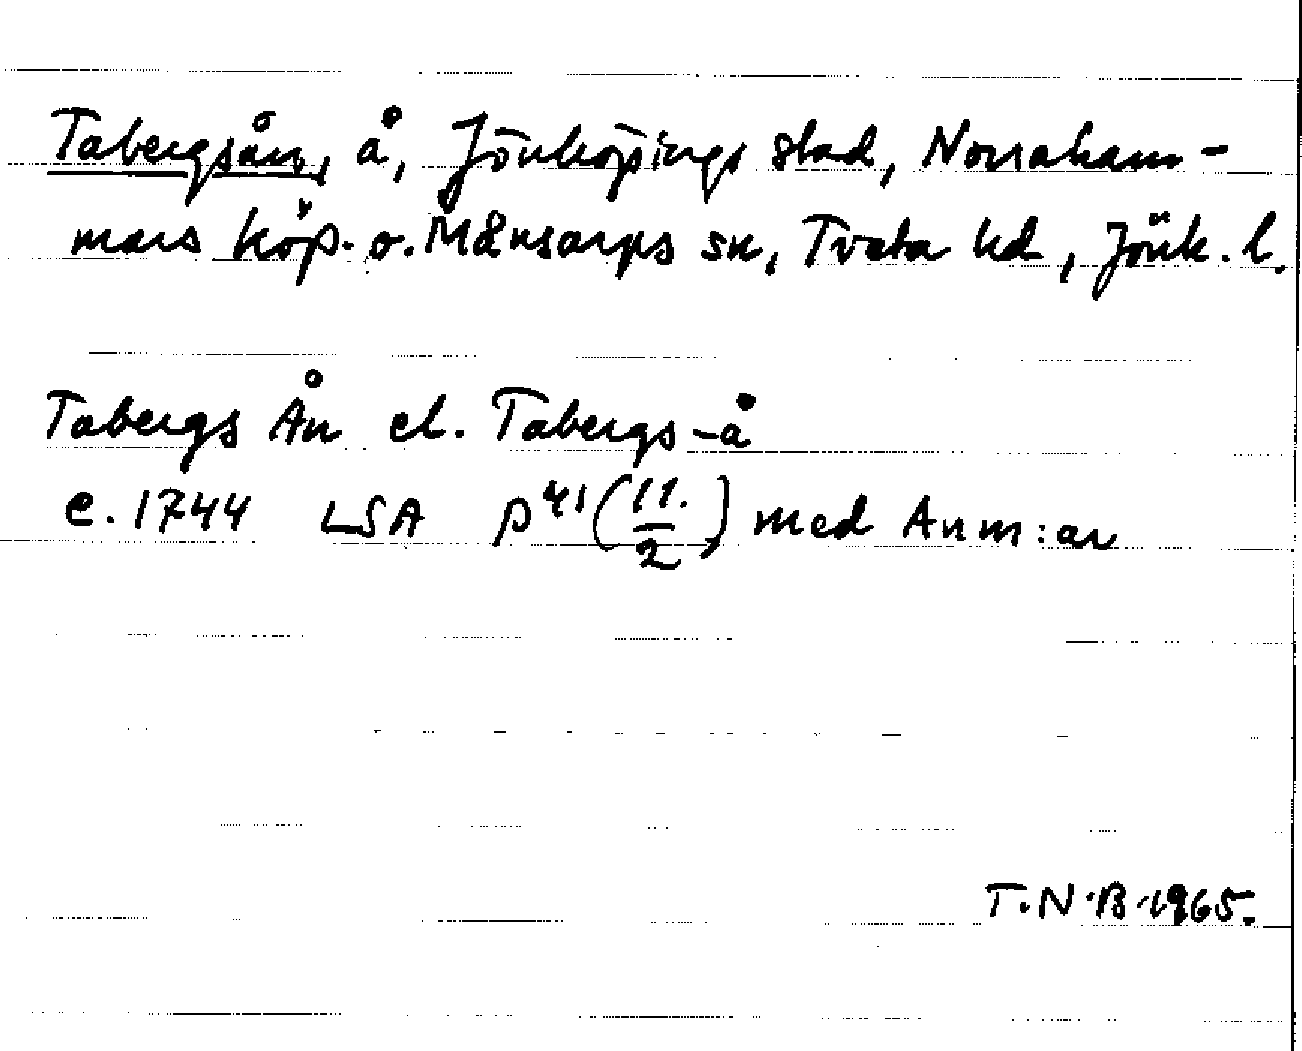 Tabergsån, å, Jönköpings stad, Norraham-
mars köp. o. Månsarps sn, Tveta hd, Jönk. l.
Tabergs Ån el. Tabergs-å
c. 1744 LSA P 41 (11./2) med Anm:ar
T.N.B. 1965.